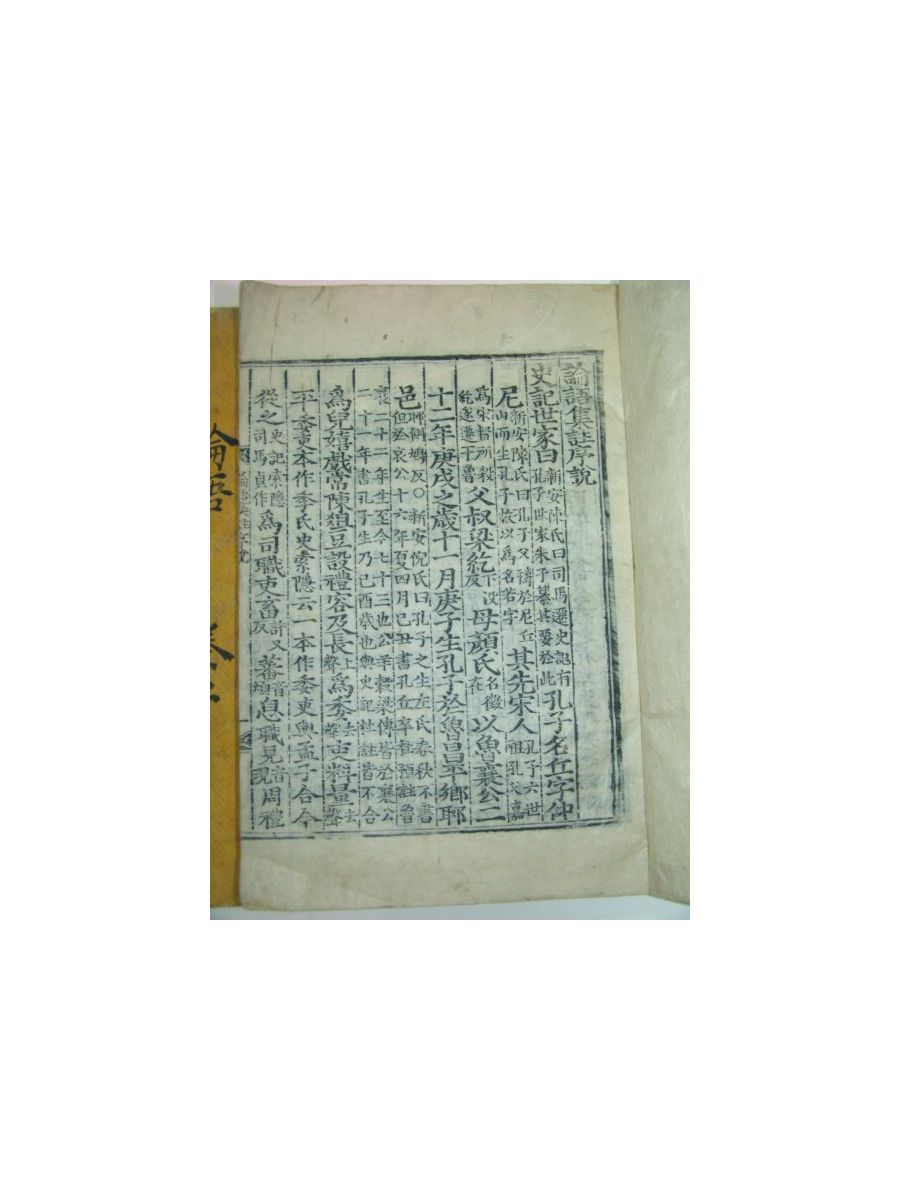 論語集註序說
史記世家曰新安陳氏曰司馬遷史記有孔子世家朱子纂其要於此孔子名丘字仲
尼新安陳氏曰孔子父禱於尼丘山而生孔子故以爲名若字其先宋人孔子六世祖孔父嘉
爲宋督所殺紇遂遷于魯父叔梁紇下沒反母顏氏名徵在以魯襄公二
十二年庚戌之歲十一月庚子生孔子於魯昌平鄕郰
邑聊側鳩反○新安倪氏曰孔子之生左氏春秋不書但於哀公十六年夏四月己丑書孔丘卒杜預註魯
襄二十二年生至今七十三也公羊穀梁傳皆於襄公二十一年書孔子生乃己酉歲也與史記杜註皆不合
爲兒嬉戲常陳俎豆設禮容及長上聲爲委去聲吏料量去聲
平委吏本作季氏史索隱云一本作委吏與孟子合今
從之史記索隱司馬貞作爲司職吏畜許又反蕃音煩息職見音現周禮
論語